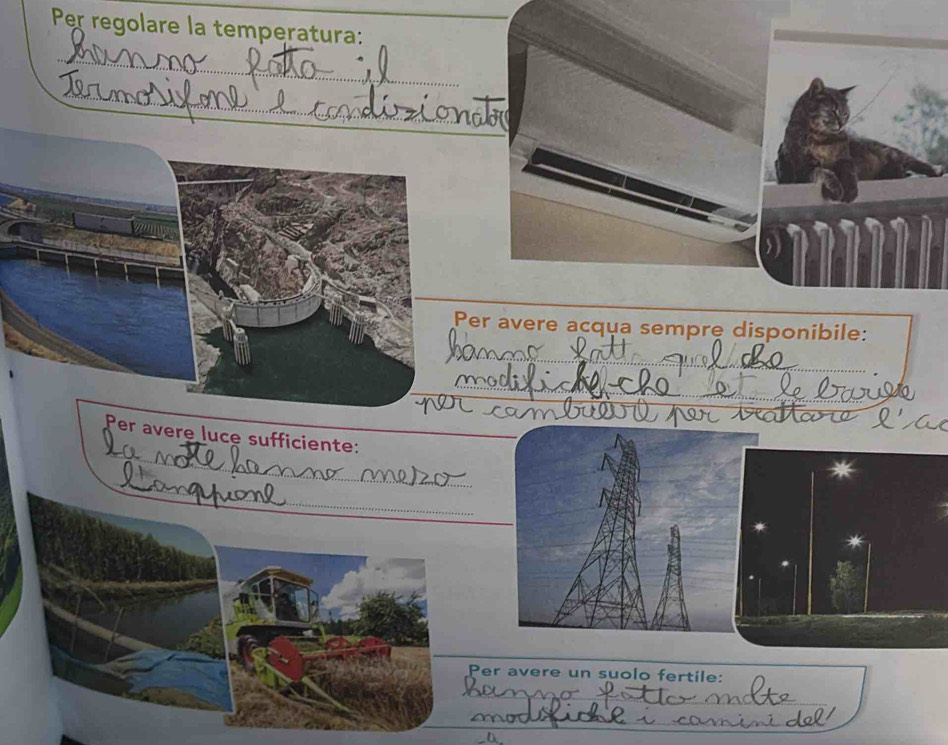 Per regolare la temperatura:
hanno fatto il
Termosifone e condizionatore
Per avere acqua sempre disponibile:
hanno fatt qual che
modifiche che le
per per trattare l'ac
Per avere luce sufficiente:
la notte hanno meso
Per avere un suolo fertile:
hanno fatto molte
modifiche i camini del'